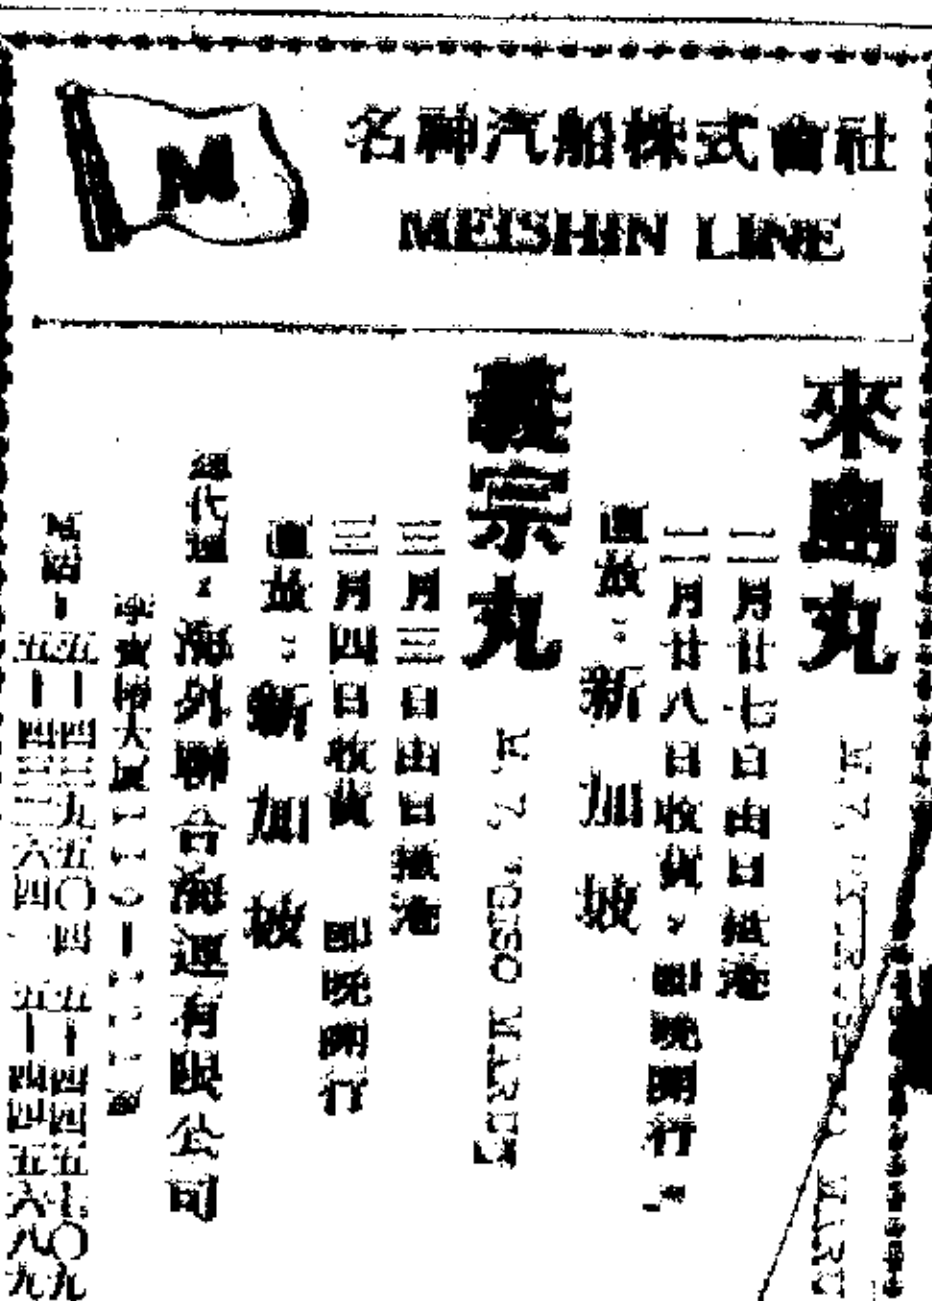 M
名神汽船株式會社
MEISHIN LINE
來島丸
二月廿七日由日抵港
二月廿八日收貨，即晚開行。
直放：新加坡
義宗丸
M.V. "GISO MARU"
三月三日由日抵港
三月四日收貨 即晚開行
直放：新加坡
總代理：海外聯合海運有限公司
大廈
電話—五—四三九五〇四 五—四四五七〇九
五—四三二六四 五—四四五六八九